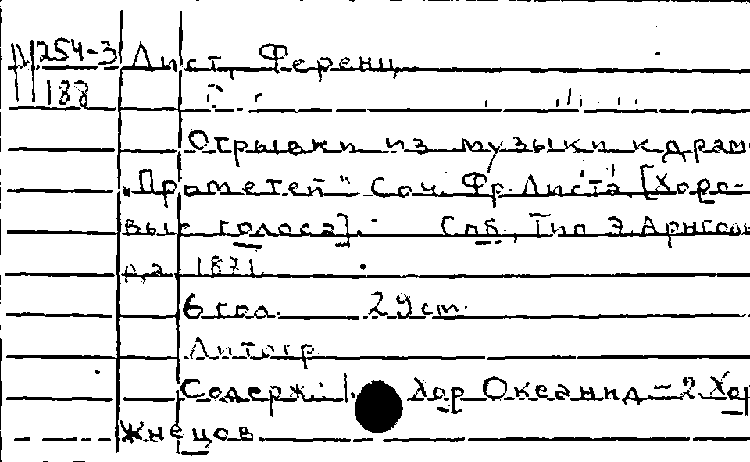 254-3 Лист, Ференц
188
Отрывки из музыки к драм
„Прометей" Соч. Фр. Листа [Хоро-
вые голоса]. Спб, Тип Э. Арнголь
да 1871.
6 гол. 29 cm.
Литогр
Содерж: 1. Хор Океанид – 2. Хор
Жнецов